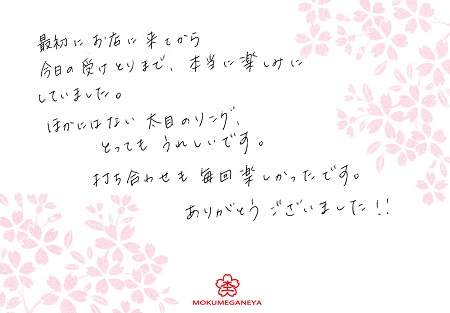 最初にお店に来てから
今日の受けとりまで、本当に楽しみに
していました。
ほかにはない太目のリング、
とってもうれしいです。
打ち合わせも毎回楽しかったです。
ありがとうございました!!
MOKUMEGANEYA